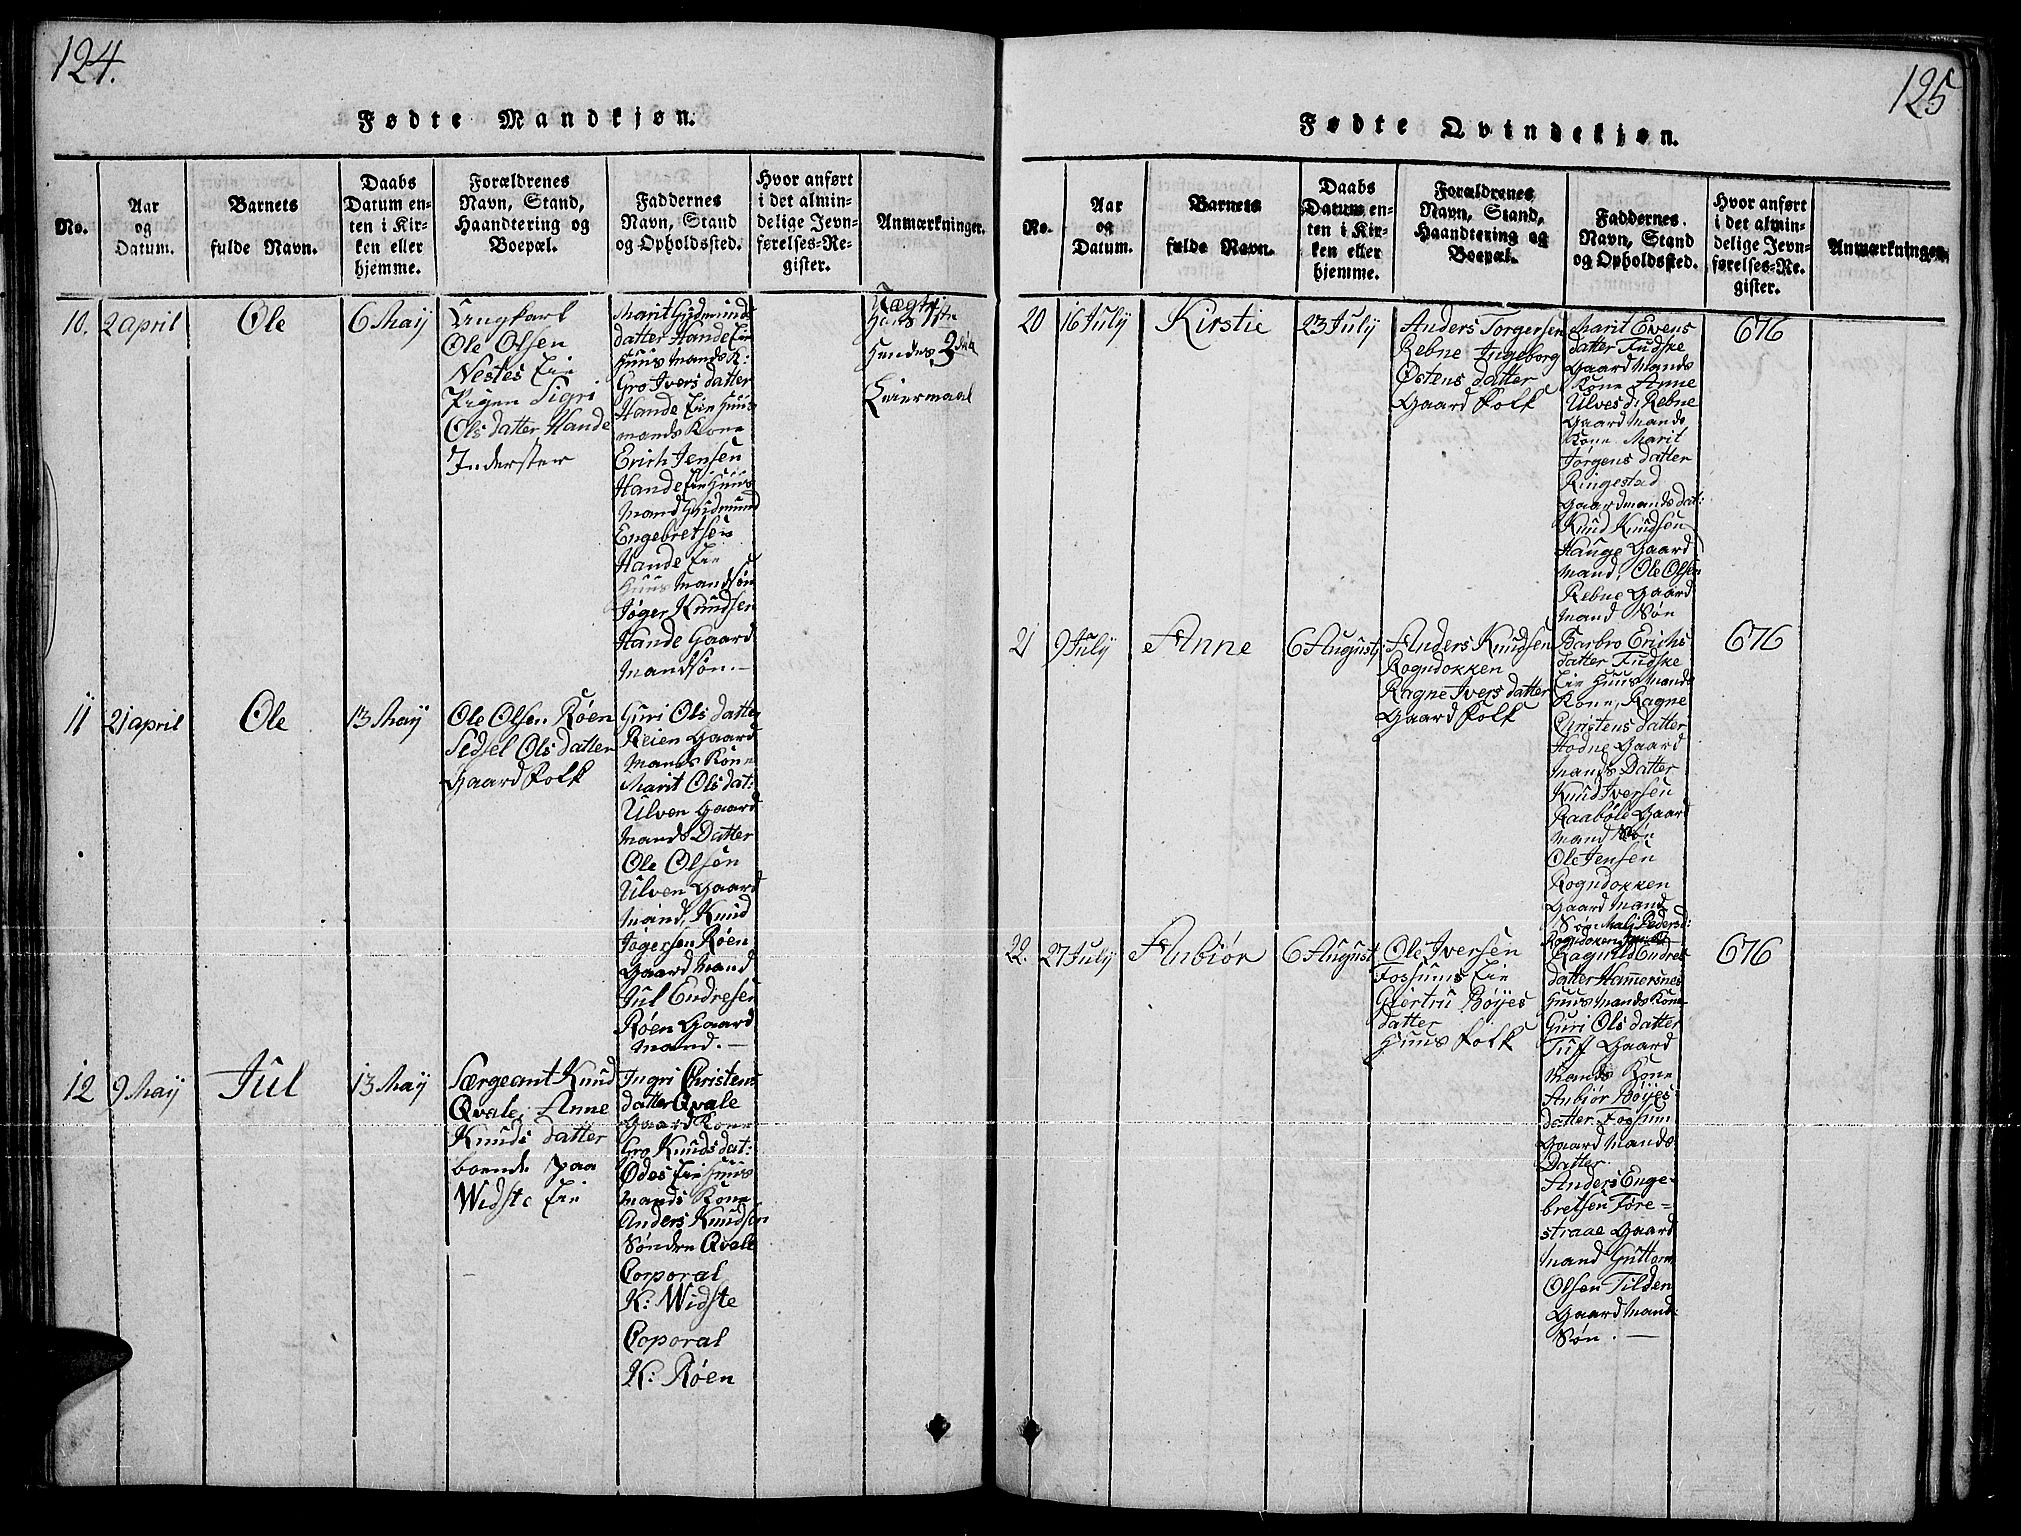 124.
Fødte Mandkjøn.
No.
Aar
og
Datum.
Barnets
fulde Navn.
Daabs
Datum en-
ten i Kir-
ken eller
hjemme.
Forældrenes
Navn, Stand,
Haandtering og
Boepæl.
Faddernes
Navn, Stand
og Opholdssted.
Hvor anført
i det almin-
delige Jevn-
førelses-Re-
gister.
Anmærkninger.
10.
2 april
Ole
6 Maÿ
Ungkarl
Ole Olsen
Nestes Eie
Pigen Sigri
Olsdatter Hande
Inderster
Marit Gudmunds
datter Hande Eie
Huusmands K:
Gro Ivers datter
Hande Eie Huus
mands Kone
Erich Jensen
Hande Eie Huus
mand Gudmund
Engebretsen
Hande Eie
Huus mandsøn
Jøger Knudsen
Hande Gaard
mandsøn.—
Hans 1ste
Hendes 2det
Leiermaal
11
21 april
Ole
13 Maÿ
Ole Olsen Røen
Sidsel Olsdatter
Gaard Folk
Guri Ols datter
Reien Gaard
mands Kone
Marit Ols dat:
Ulven Gaard
mands Datter
Ole Olsen
Ulven Gaard
mand, Knud
Jøgersen Røen
Gaard mand
Jul Endresen
Røen Gaard
mand.—
12
9 Maÿ
Jul
13 Maÿ
Særgeant Knud
Qvale, Anne
Knuds datter
boende paa
Widste Eie
Ingri Christens
datter Qvale
Gaard Kone
Gro Knuds dat:
Ødes Eie Huus
mands Kone
Anders Knudsen
Søndre Qvale
Corporal
K: Widste
Coporal
K: Røen
125
Fødte Qvindekjøn.
No.
Aar
og
Datum.
Barnets
fulde Navn.
Daabs
Datum en-
ten i Kir-
ken eller
hjemme.
Forældrenes
Navn, Stand,
Haandtering og
Boepæl.
Faddernes
Navn, Stand
og Opholdssted.
Hvor anført
i det almin-
delige Jevn-
førelses-Re-
gister.
Anmærkninger.
20
16 Julÿ
Kirstie
23 Julÿ
Anders Torgersen
Rebne Ingeborg
Østens datter
Gaard Folk
Marit Evens
datter Fudske
Gaard Mands
Kone Anne
Ulves d: Rebne
Gaard mands
Kone Marit
Jørgens datter
Ringestad
Gaardmands dat:
Knud Knudsen
Hauge Gaard
mand, Ole Olsen
Rebne Gaard
mand Søn
676
21
9 Julÿ
Anne
6 August
Anders Knudsen
Rogndokken
Ragne Ivers datter
Gaard Folk
Barbro Erichs
datter Fudske
Eie Huus Mands
Kone, Ragne
Christens datter
Hodne Gaard
mands Datter
Knud Iversen
Raabøle Gaard
mand Søn
Ole Jensen
Rogndokken
Gaard mand
Søn Mali Peders d:
Rogndoken
676
22.
27 Julÿ
Anbiør
6 August
Ole Iversen
Fossums Eie
Giertru Bøÿes
datter
Huus Folk
Ragnild Endres
datter Hamersnes
Huus mands Kone
Guri Ols datter
Tuff Gaard
mands Kone
Anbiør Bøÿes
datter Fossum
Gaard mands
Datter.
Anders Enge-
bretsen Føre-
straae Gaard
mand Guttorm
Olsen Tilden
Gaard mand
Søn.—
676